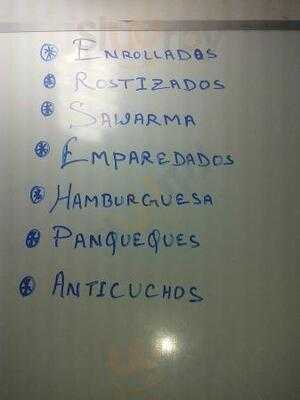 ⊛ ENROLLADOS
⊛ ROSTIZADOS
⊛ SAWARMA
⊛ EMPAREDADOS
⊛ HAMBURGUESA
⊛ PANQUEQUES
⊛ ANTICUCHOS